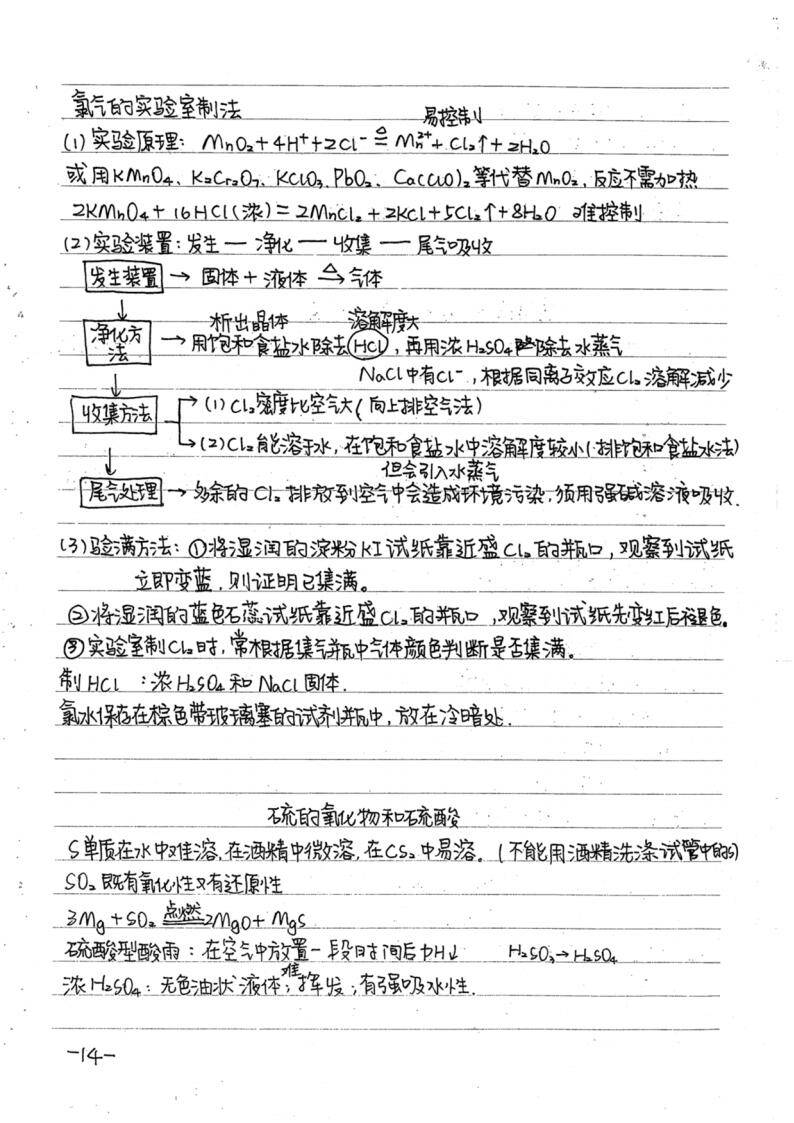 氯气的实验室制法
易控制
(1) 实验原理: MnO₂+4H⁺+2Cl⁻ ≜ Mn²⁺+Cl₂↑+2H₂O
或用KMnO₄、K₂Cr₂O₇、KClO₃、PbO₂、Ca(ClO)₂等代替MnO₂,反应不需加热
2KMnO₄+16HCl(浓)=2MnCl₂+2KCl+5Cl₂↑+8H₂O 难控制
(2)实验装置:发生—净化—收集—尾气吸收
发生装置 → 固体+液体 △→ 气体
析出晶体 溶解度大
净化方法 → 用饱和食盐水除去HCl,再用浓H₂SO₄除去水蒸气
NaCl中有Cl⁻,根据同离子效应Cl₂溶解减少
收集方法 → (1)Cl₂密度比空气大(向上排空气法)
→ (2)Cl₂能溶于水,在饱和食盐水中溶解度较小(排饱和食盐水法)
但会引入水蒸气
尾气处理 → 多余的Cl₂排放到空气中会造成环境污染,须用强碱溶液吸收.
(3)验满方法:①将湿润的淀粉KI试纸靠近盛Cl₂的瓶口,观察到试纸
立即变蓝,则证明已集满。
②将湿润的蓝色石蕊试纸靠近盛Cl₂的瓶口,观察到试纸先变红后褪色。
③实验室制Cl₂时,常根据集气瓶中气体颜色判断是否集满。
制HCl :浓H₂SO₄和NaCl固体.
氯水保存在棕色带玻璃塞的试剂瓶中,放在冷暗处.
硫的氧化物和硫酸
S单质在水中难溶,在酒精中微溶,在CS₂中易溶。(不能用酒精洗涤试管中的S)
SO₂既有氧化性又有还原性
3Mg+SO₂ 点燃 2MgO+MgS
硫酸型酸雨:在空气中放置一段时间后pH↓ H₂SO₃→H₂SO₄
浓H₂SO₄:无色油状液体;难挥发;有强吸水性.
-14-